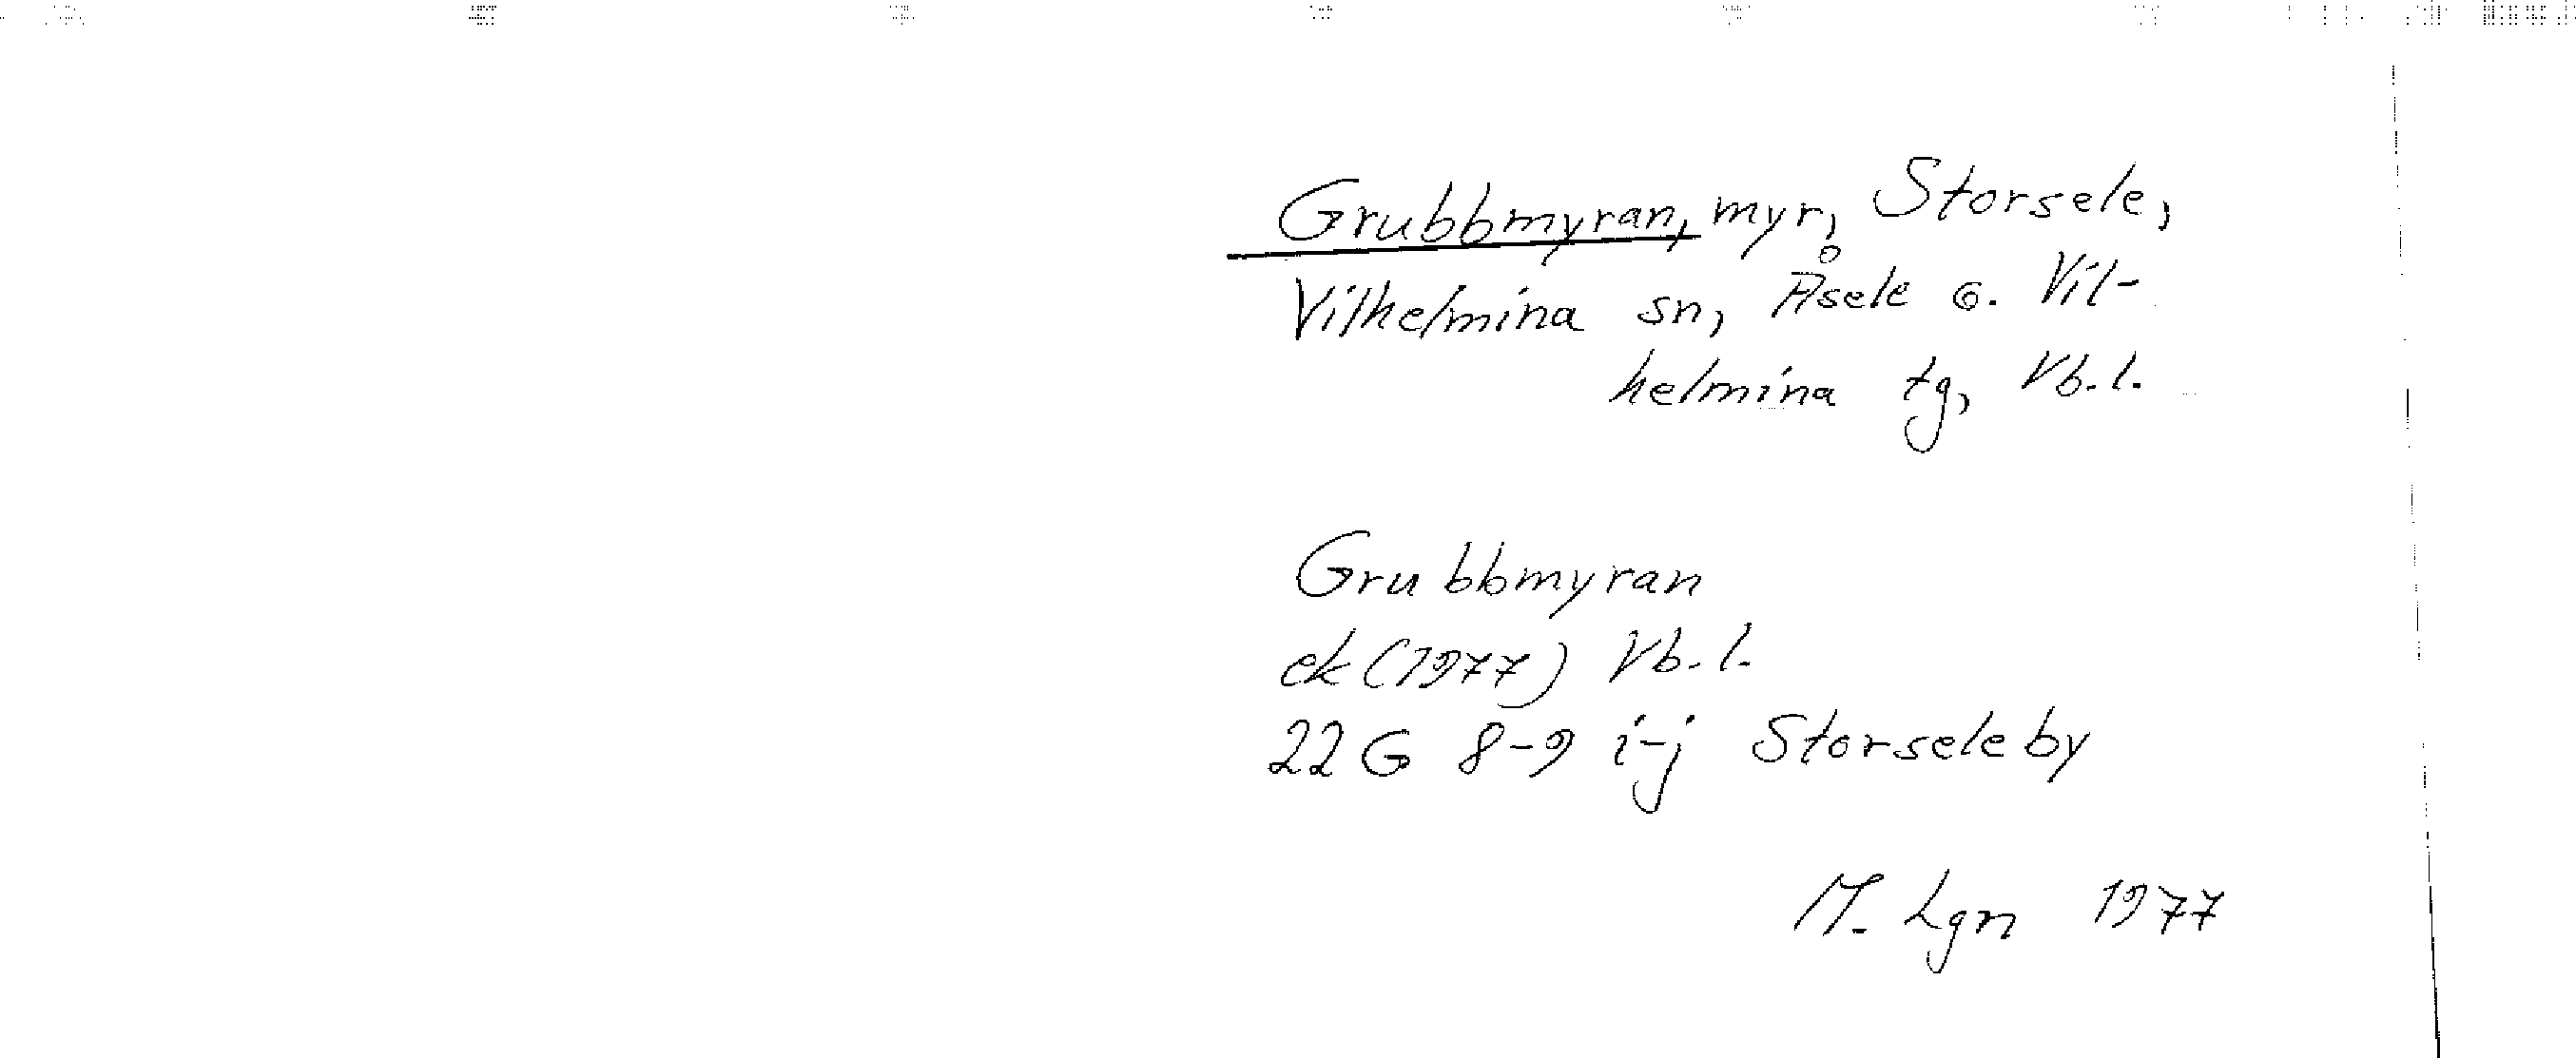 Grubbmyran, myr, Storsele,
Vilhelmina sn, Åsele o. Vil-
helmina tg, Vb. l.
Grubbmyran
ek (1977) Vb. l.
22 G 8-9 i-j Storseleby
M. Lgn 1977